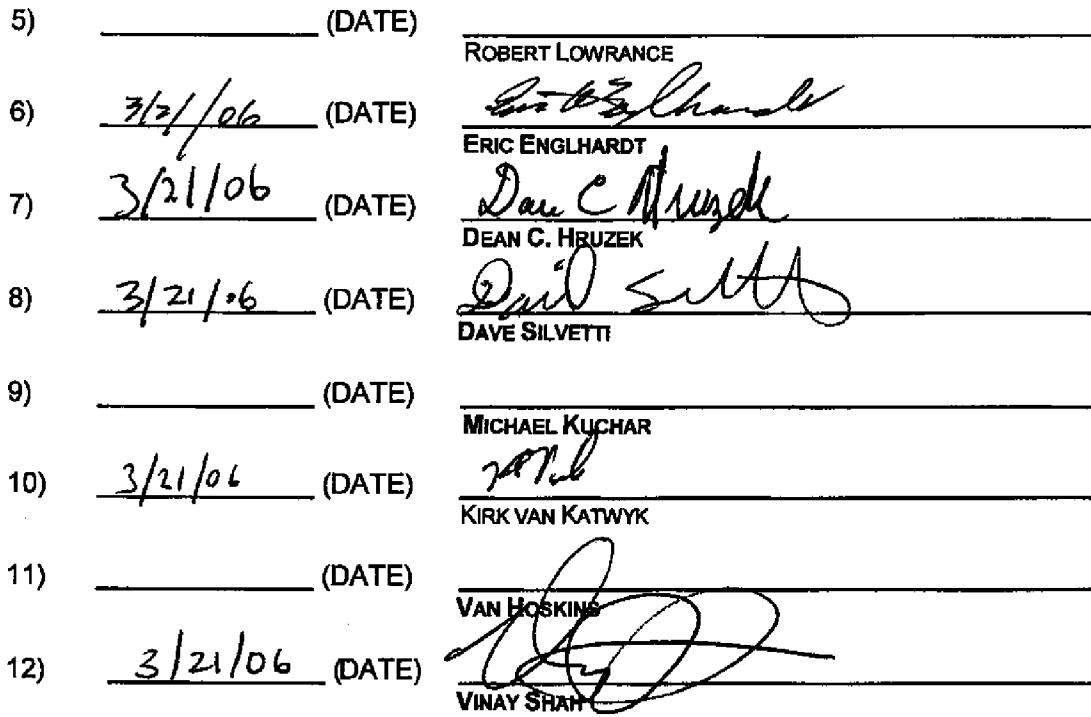 5) (DATE)
ROBERT LOWRANCE
6) 3/21/06 (DATE) Eric Englhardt
ERIC ENGLHARDT
7) 3/21/06 (DATE) Dean C Hruzek
DEAN C. HRUZEK
8) 3/21/06 (DATE) David Silvetti
DAVE SILVETTI
9) (DATE)
MICHAEL KUCHAR
10) 3/21/06 (DATE)
KIRK VAN KATWYK
11) (DATE)
VAN HOSKINS
12) 3/21/06 (DATE)
VINAY SHAH